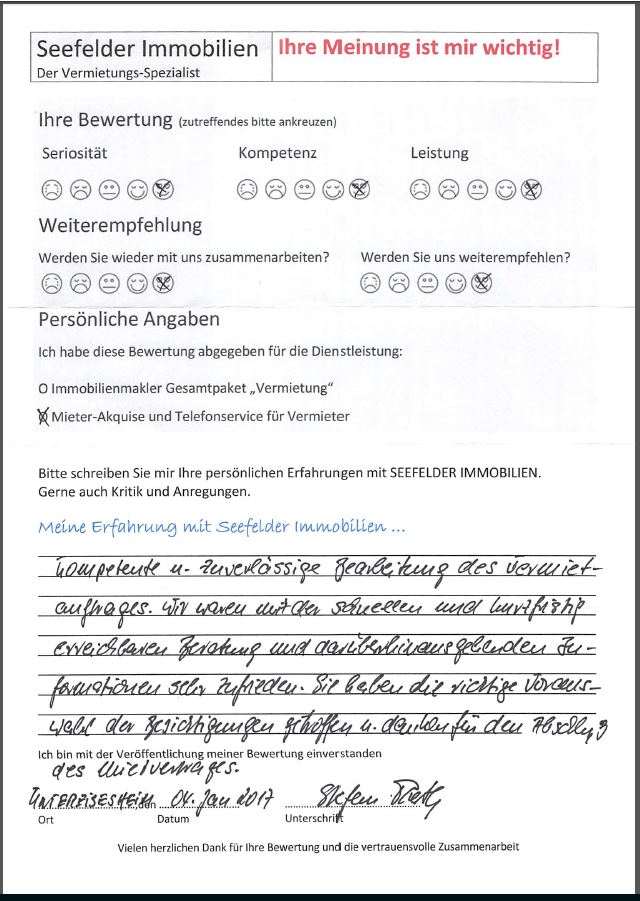 Seefelder Immobilien
Ihre Meinung ist mir wichtig!
Der Vermietungs-Spezialist
Ihre Bewertung (zutreffendes bitte ankreuzen)
Seriosität Kompetenz Leistung
Weiterempfehlung
Werden Sie wieder mit uns zusammenarbeiten? Werden Sie uns weiterempfehlen?
Persönliche Angaben
Ich habe diese Bewertung abgegeben für die Dienstleistung:
O Immobilienmakler Gesamtpaket „Vermietung“
Mieter-Akquise und Telefonservice für Vermieter
Bitte schreiben Sie mir Ihre persönlichen Erfahrungen mit SEEFELDER IMMOBILIEN.
Gerne auch Kritik und Anregungen.
Meine Erfahrung mit Seefelder Immobilien ...
Kompetente u. zuverlässige Bearbeitung des Vermiet-
auftrages. Wir waren mit der schnellen und kurzfristig
erreichbaren Beratung und darüberhinausgehenden In-
formationen sehr zufrieden. Sie haben die richtige Voraus-
wahl der Besichtigungen getroffen u. danken für den Abschluß
Ich bin mit der Veröffentlichung meiner Bewertung einverstanden
des Mietvertrages.
UNTEREISESHEIM, den 04. Jan 2017 Stefan
Ort Datum Unterschrift
Vielen herzlichen Dank für Ihre Bewertung und die vertrauensvolle Zusammenarbeit